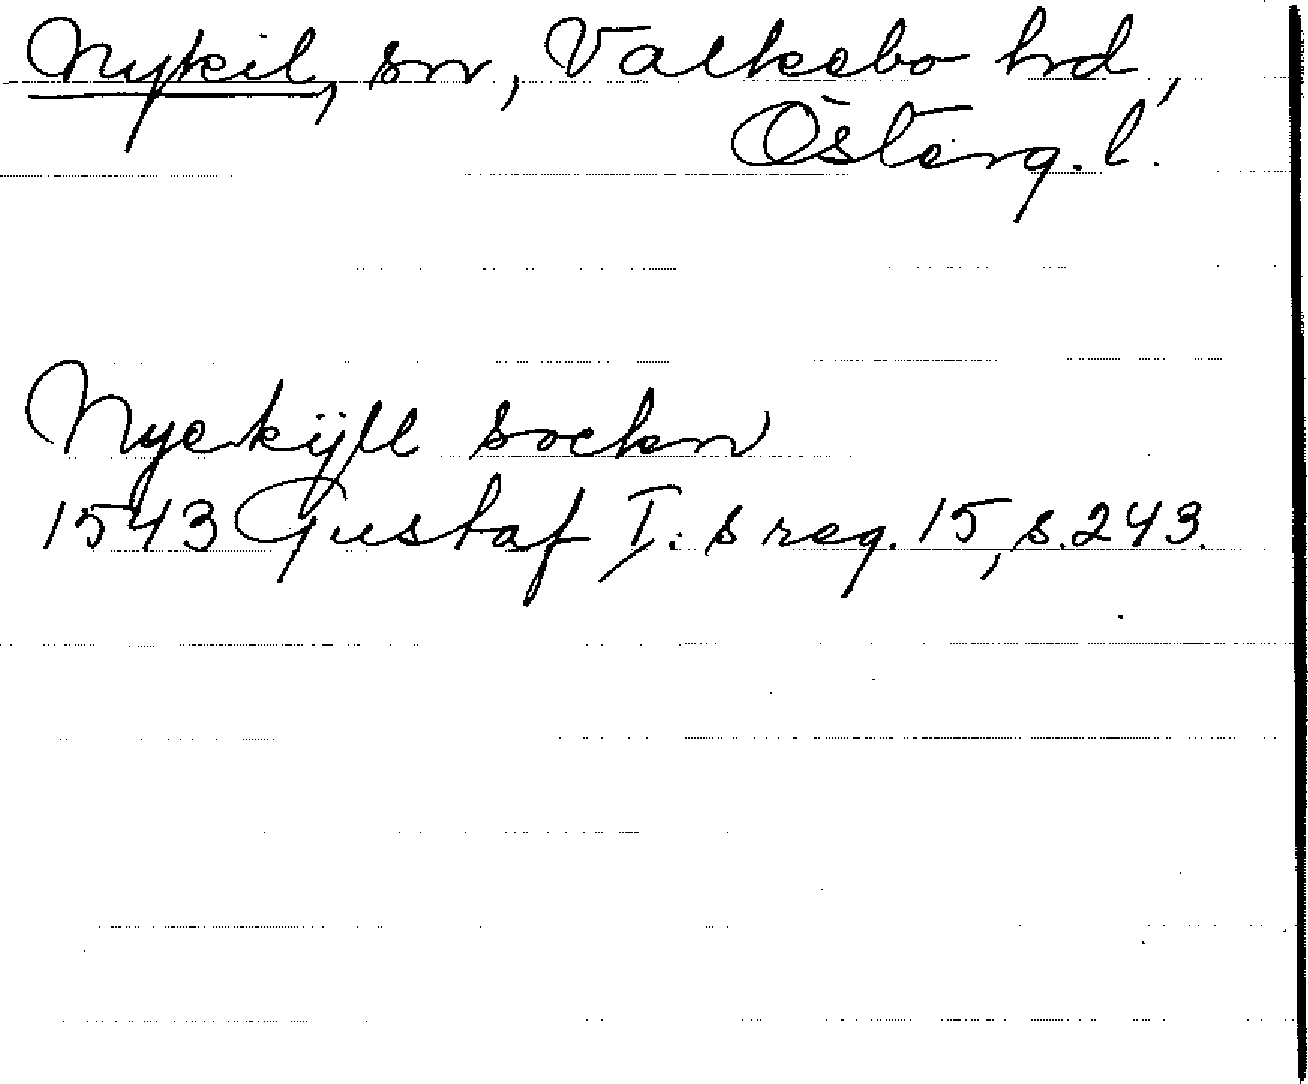 Nykil, sn, Valkebo hd,
Österg. l.
Nyckijll sockn
1543 Gustaf I:s reg. 15, s. 243.